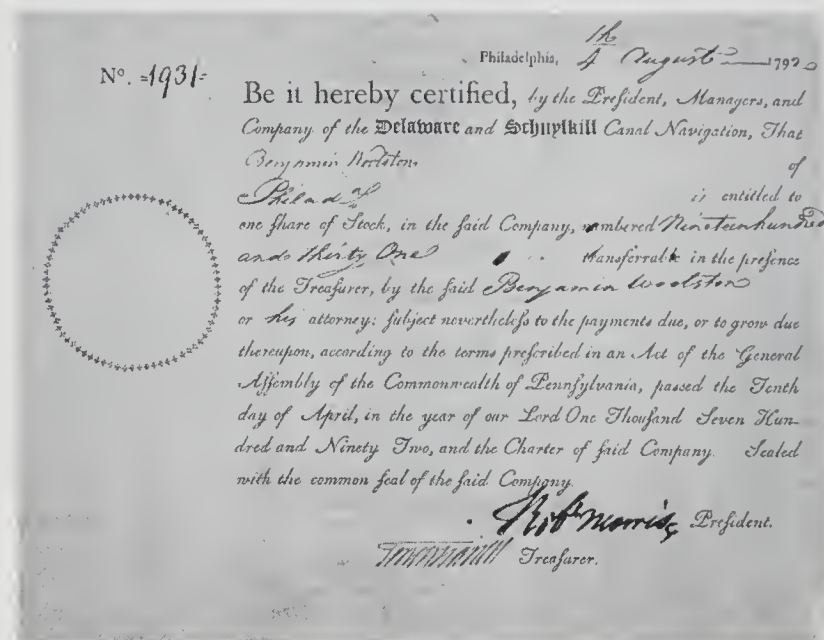 Philadelphia, 4th August 179
No. 1931
Be it hereby certified, by the Preſident, Managers, and
Company of the Delaware and Schuylkill Canal Navigation, That
Benjamin Woolston of
Philada is entitled to
one ſhare of Stock, in the ſaid Company, numbered Nineteen hundred
and thirty One transferrable in the preſence
of the Treaſurer, by the ſaid Benjamin Woolston
or his attorney; ſubject nevertheleſs to the payments due, or to grow due
thereupon, according to the terms preſcribed in an Act of the General
Aſſembly of the Commonwealth of Pennſylvania, paſſed the Tenth
day of April, in the year of our Lord One Thouſand Seven Hun-
dred and Ninety Two, and the Charter of ſaid Company. Sealed
with the common ſeal of the ſaid Company.
Robt Morris, Preſident.
Treaſurer.